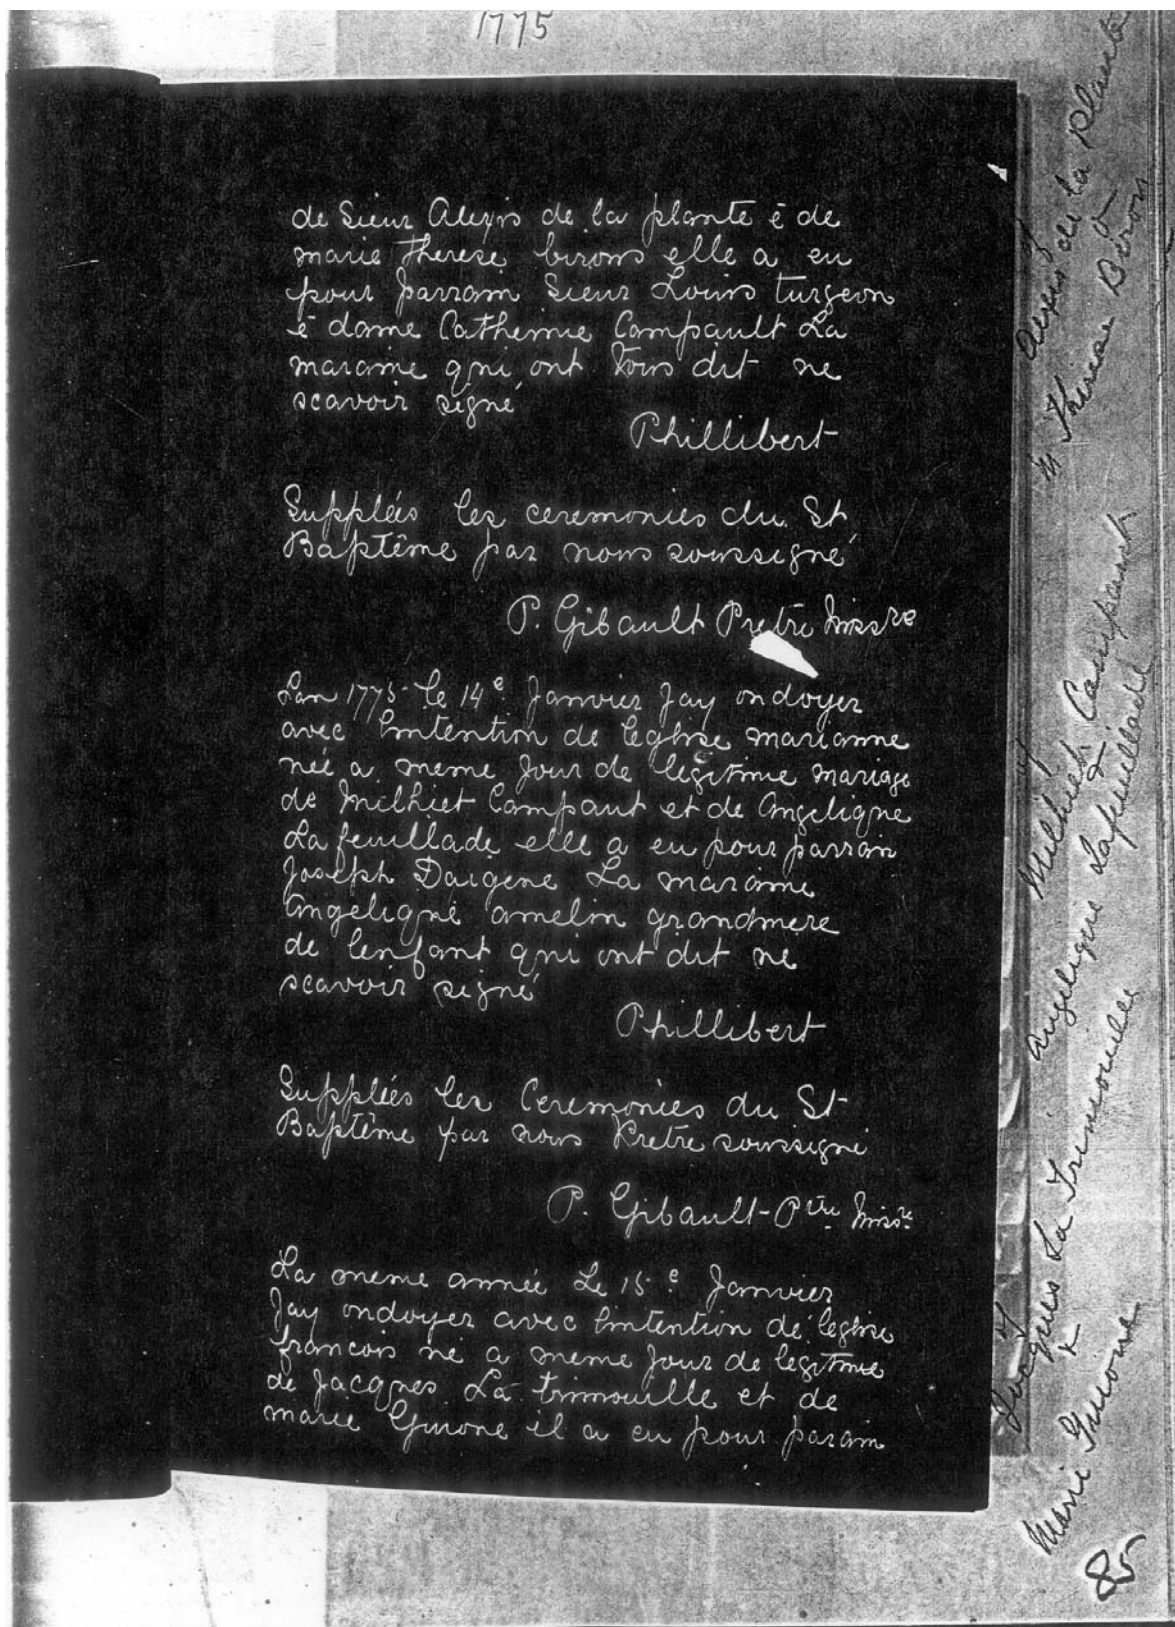 1775
de Sieur Alexis de la plante é de
marie therese birons elle a eu
pour parrain Sieur Louis turgeon
é dame Catherine Campault La
maraine qui ont tous dit ne
scavoir signé
Phillibert
Suppléés les ceremonies du St
Baptême par nous soussigné
P. Gibault Pretre Missre
Lan 1775 le 14e Janvier Jay ondoyer
avec lintention de leglise marianne
née a meme Jour de legitime mariage
de Milhiet Campaut et de Angelique
La feuillade elle a eu pour parrain
Joseph Daigene La maraine
Angeliqué amelin grandmere
de lenfant qui ont dit ne
scavoir signé
Phillibert
Suppléés les Ceremonies du St
Baptême par nous Pretre soussigné
P. Gibault Ptre Missre
La meme année Le 15e Janvier
Jay ondoyer avec lintention de leglise
francois né a meme Jour de legitime
de Jacques La trimouille et de
marie Guione il a eu pour parain
of
Alexis de la Plante
&
M Therese Biron
of
Milhiet Campault
&
Angelique Lafeuillade
of
Jacques La Trimouille
&
Marie Guione
85